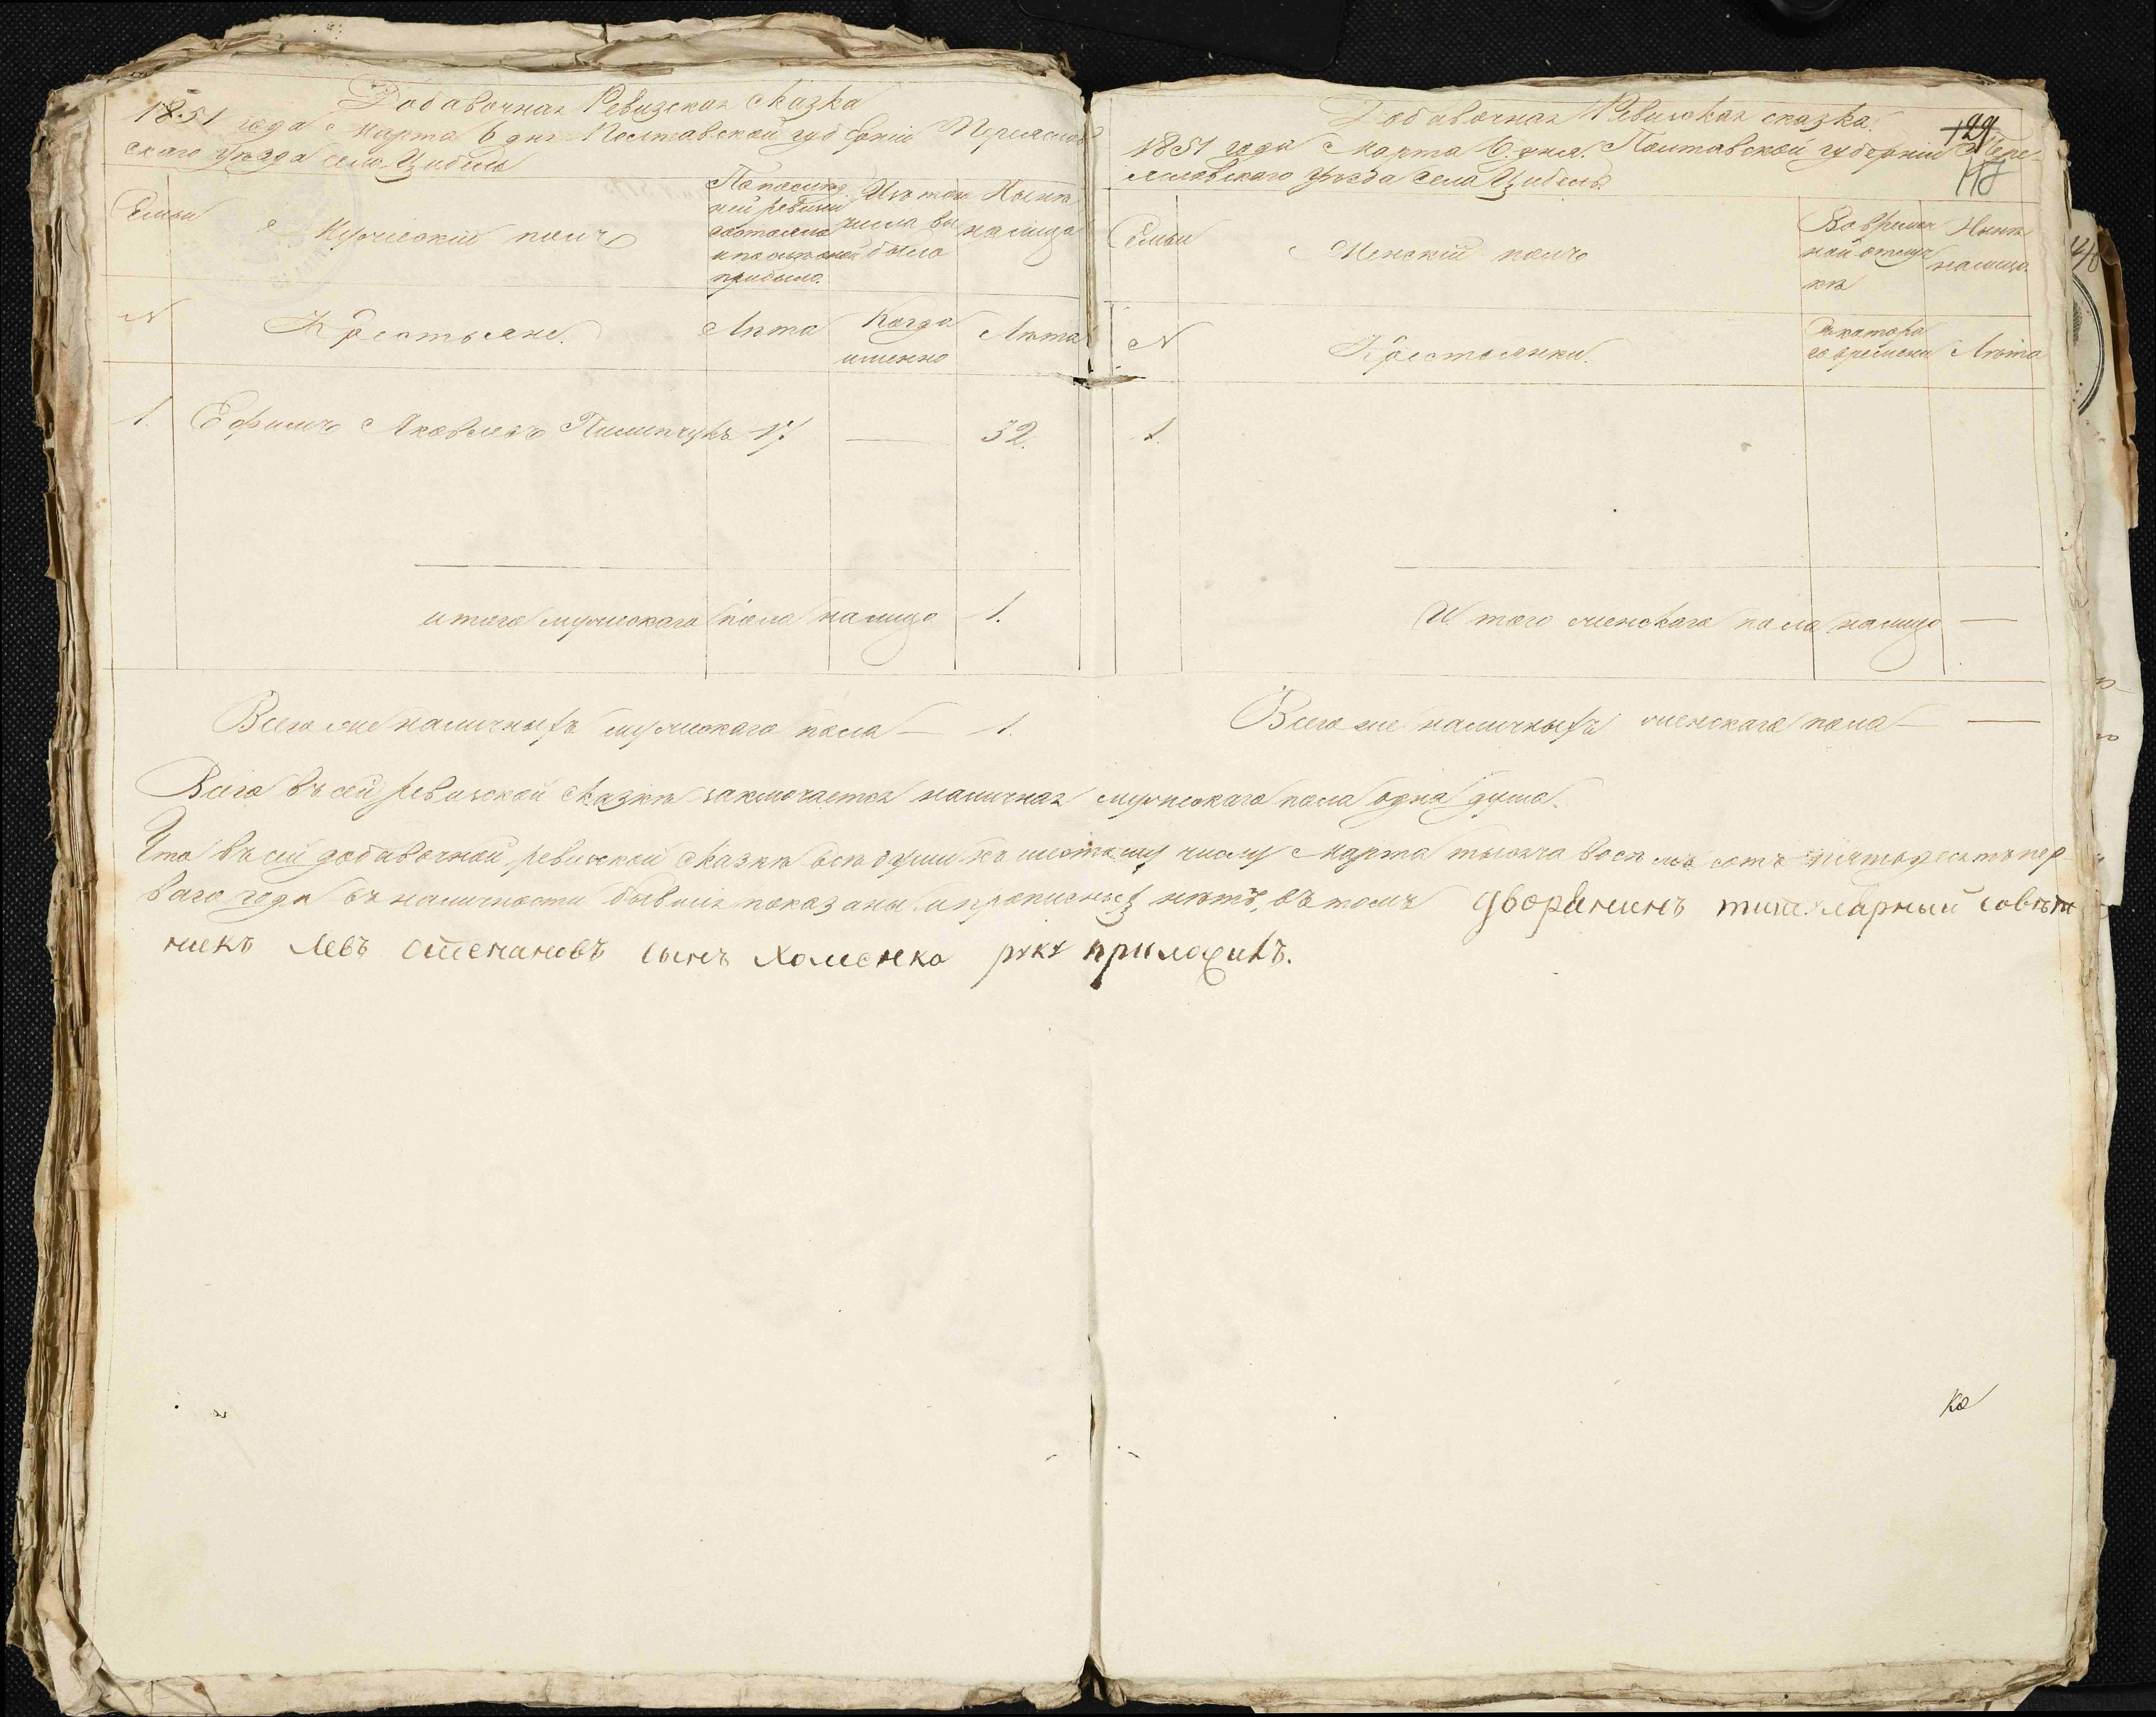 Добавочная Ревизская сказка
1851 года Марта 6 дня Полтавской губернiи Переяслов
скаго уѣзда села Цибель
Семьи
Мужескiй полъ
По послѣд
ней ревизiи
состояло
и после оной
прибыло.
Изъ того
числа вы
было
Нынѣ
на лицо
N
Крестьяне.
Лѣта
Когда
именно
Лѣта
1. Ефимъ Яковлевъ Пилипчукъ 17 — 32.
итого мужескаго пола на лицо 1.
Всего же наличныхъ мужескаго пола — 1.
Добавочная Ревизская сказка.
129
118
1851 года Марта 6. дня. Полтавской губернiи Пере-
яславскаго уѣзда села Цибель
Семьи
Женскiй полъ
Во времен
ной отлуч
кѣ
Нынѣ
на лицо.
N
Крестьянки.
Съ котора
го времени
Лѣта
1.
И того женскаго пола на лицо —
Всего же наличныхъ женскаго пола — —
Всего въ сей ревизской сказкѣ заключается наличная мужескаго пола одна душа.
Что въ сей добавочной ревизской сказкѣ всѣ души къ шестому числу Марта тысяча восемь сотъ пятьдесятъ пер
ваго года въ наличности бывшiя показаны и прописныхъ нѣтъ, въ томъ дворянинъ титулярный совѣт
никъ Левъ Степановъ сынъ Хоменко руку приложилъ.
ко